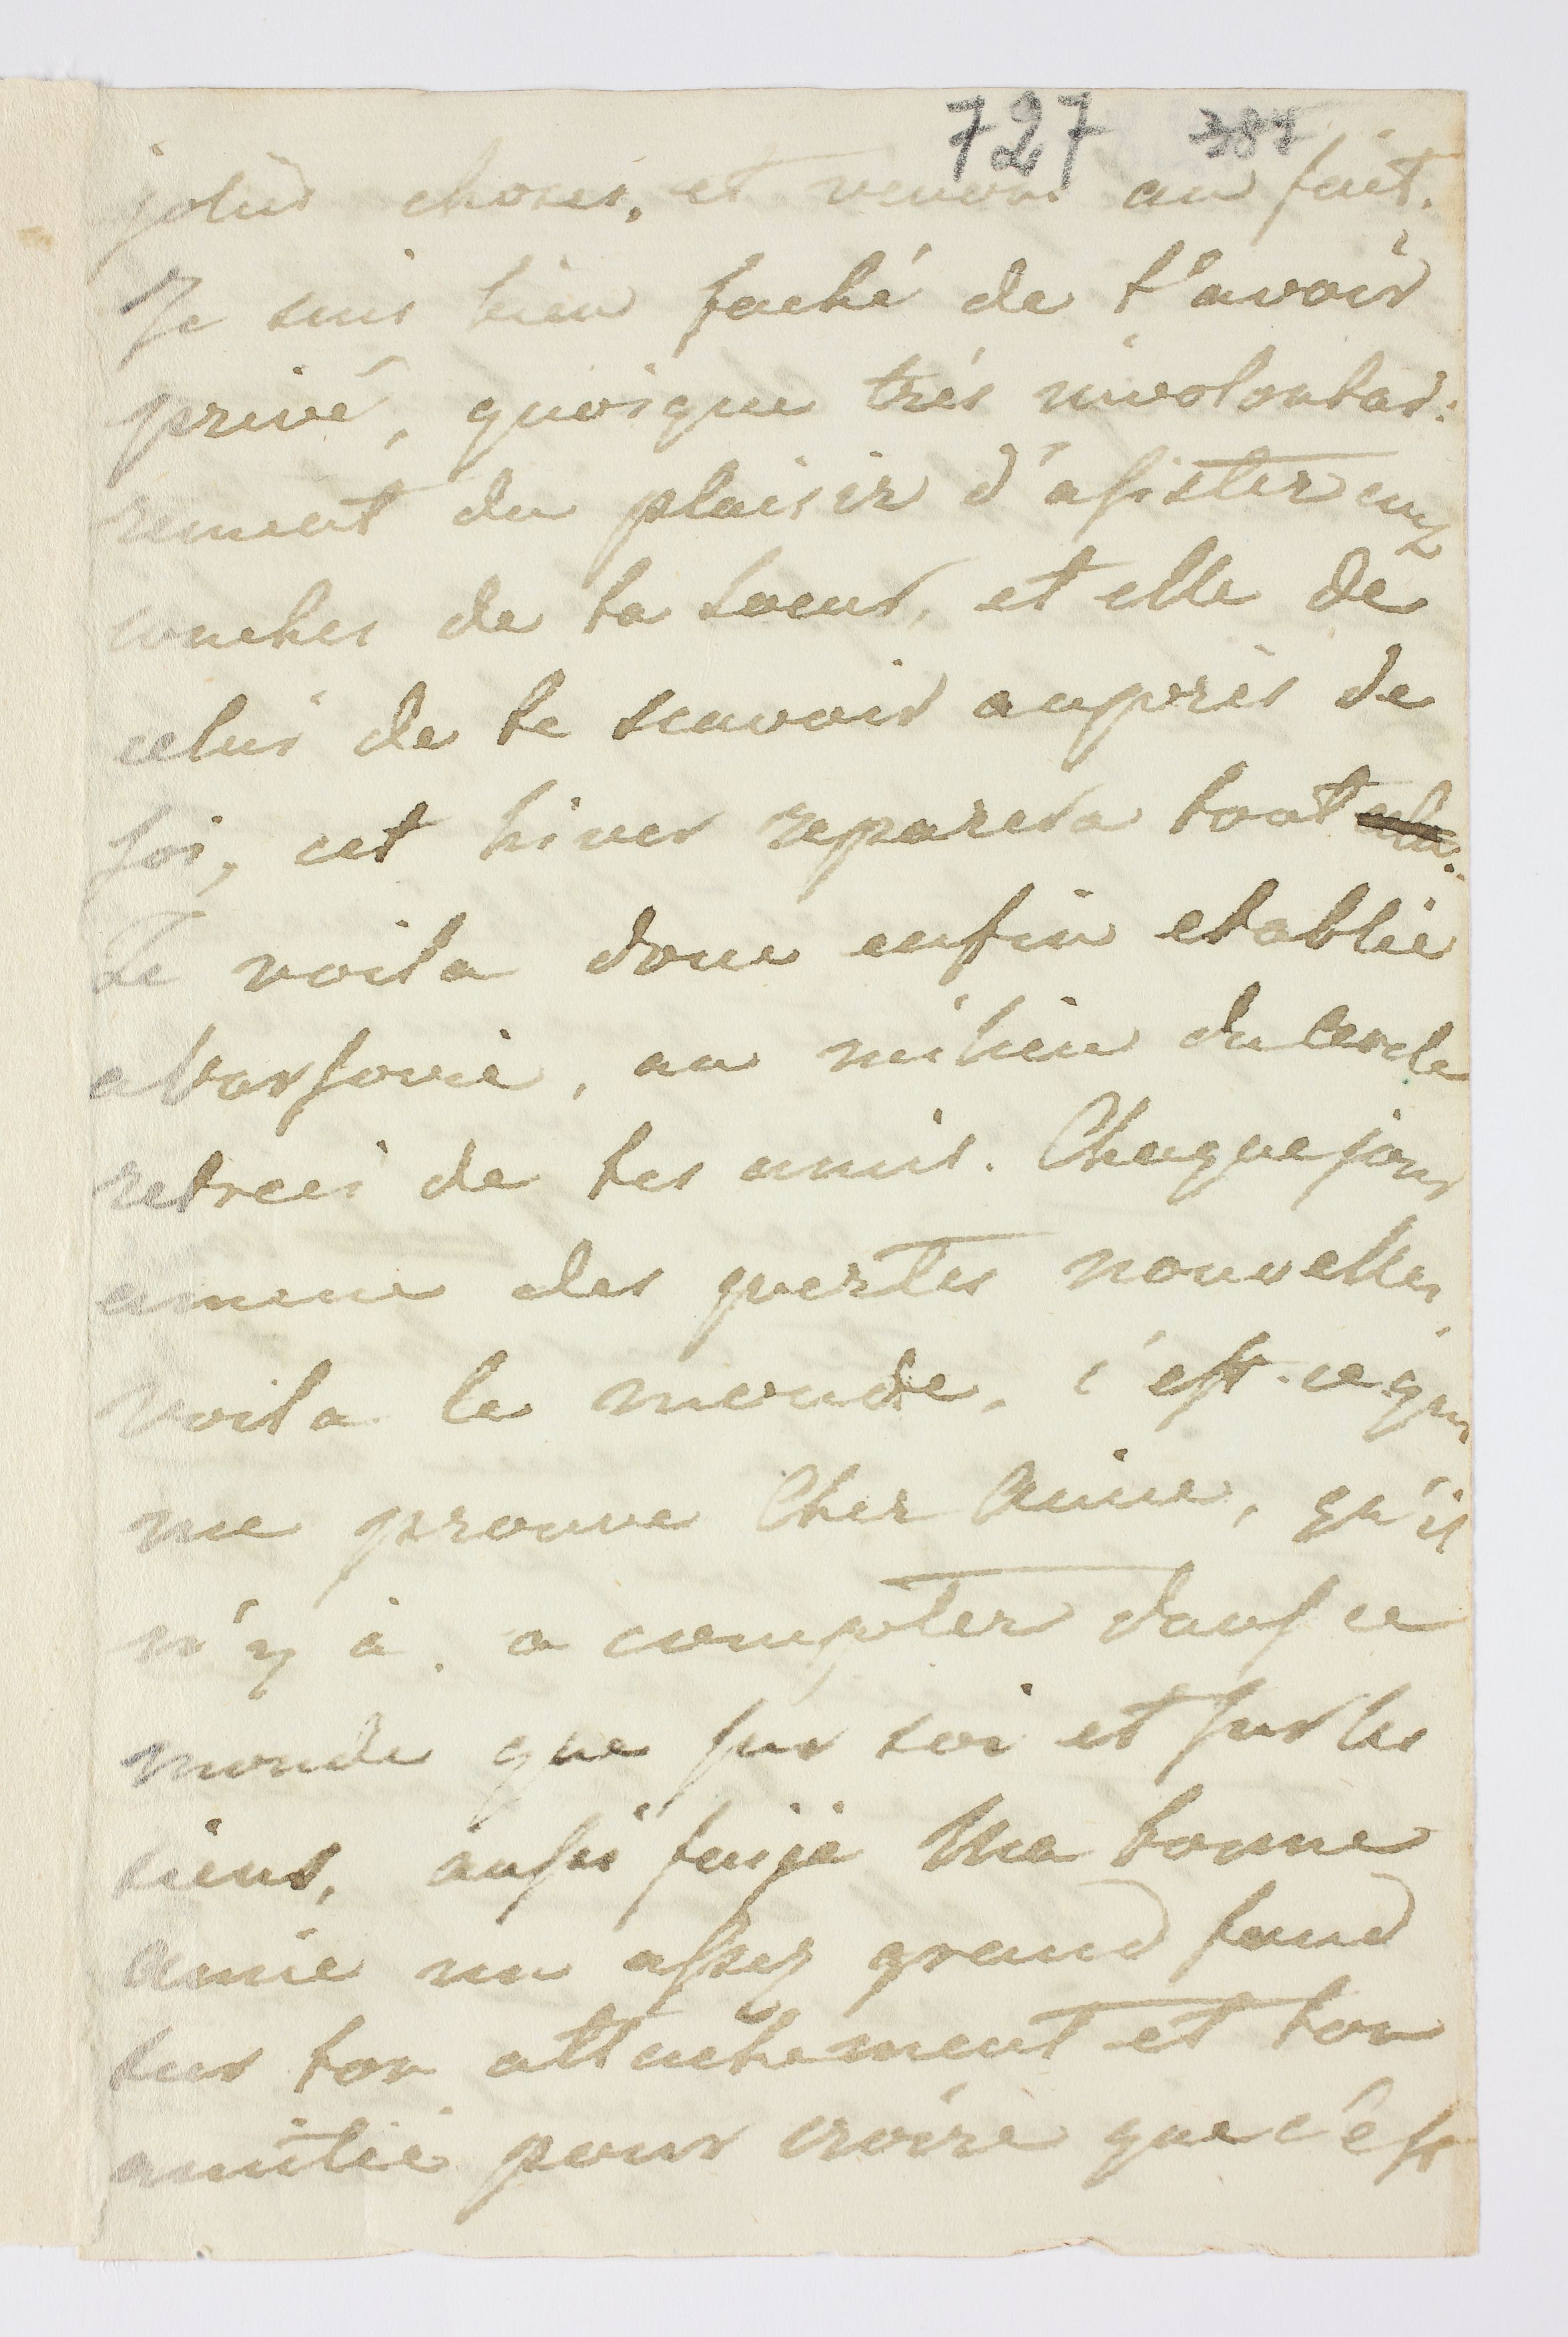 727 387
jolies choses, et venons au fait.
Je suis bien faché de t'avoir
privé, quoique très involontai:
rement du plaisir d'assister aux
couches de ta soeur, et elle de
celui de te scavoir auprès de
soi, cet hiver reparera tout cela.
Te voila donc enfin etablie
a Varsovie, au milieu du Cercle
retreci de tes amis. Chaque jour
amene des pertes nouvelles,
voila le monde, c'est ce qui
me prouve Cher Amie, qu'il
n'y à a compter dans ce
monde que sur soi et sur les
siens, aussi faije Ma bonne
Amie un assez grand fond
sur ton attachement et ton
amitié pour croire que c'est